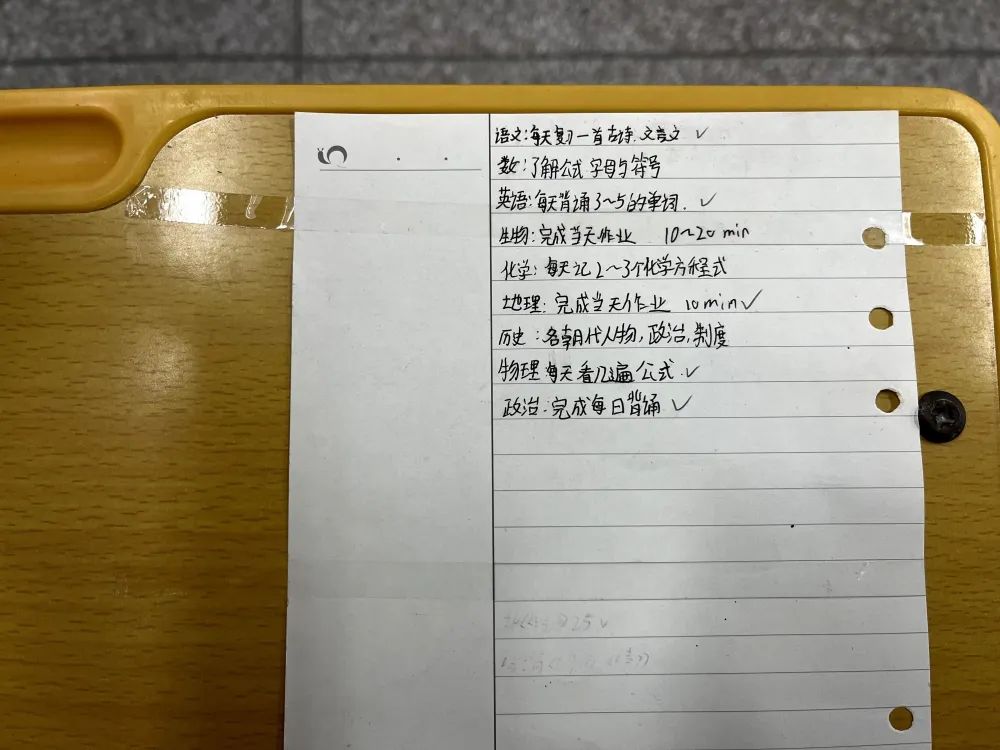 语文:每天复习一首古诗.文言文 ✓
数:了解公式 字母与符号
英语:每天背诵3~5的单词. ✓
生物:完成当天作业 10~20 min
化学:每天记2~3个化学方程式
地理:完成当天作业 10min✓
历史:各朝代人物,政治,制度
物理 每天看几遍公式.✓
政治:完成每日背诵 ✓
25 ✓